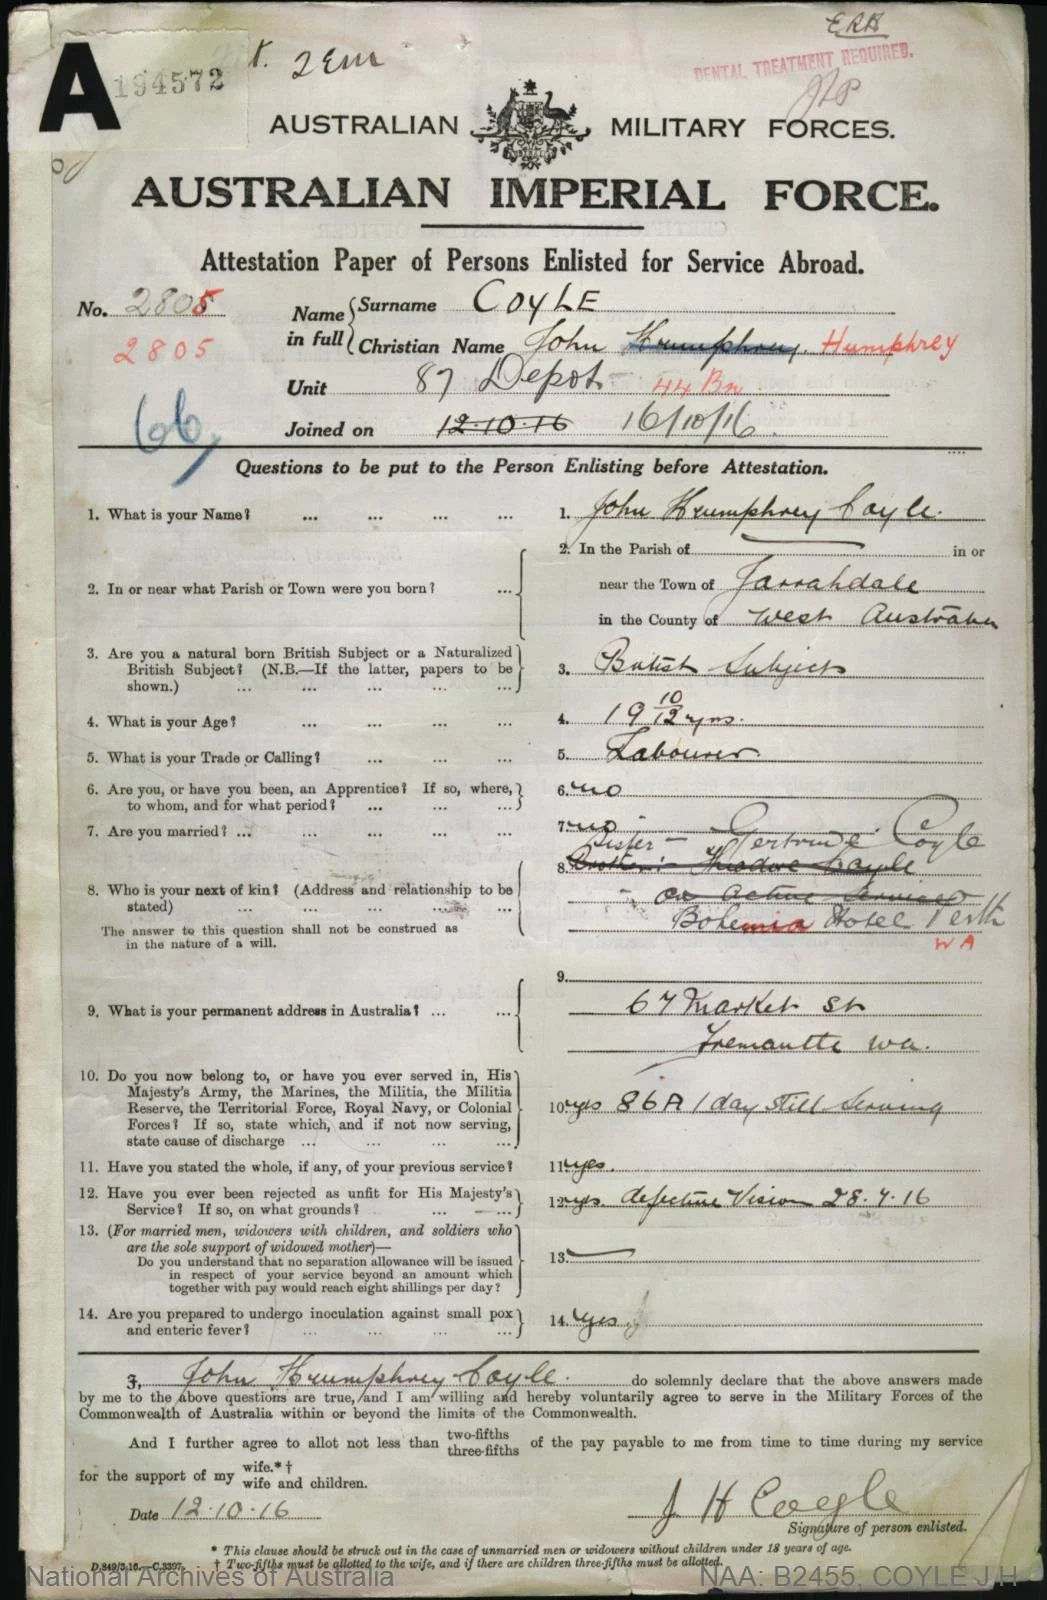 ERB
A
194572
2 Em
DENTAL TREATMENT REQUIRED.
AUSTRALIAN MILITARY FORCES.
AUSTRALIAN IMPERIAL FORCE.
Attestation Paper of Persons Enlisted for Service Abroad.
No. 2805
2805
Name in full { Surname COYLE
Christian Name John Hrumphrey. Humphrey
Unit 87 Depot 44 Bn
66
Joined on 12.10.16 16/10/16
Questions to be put to the Person Enlisting before Attestation.
1. What is your Name? ... ... ... ... 1. John Hrumphrey Coyle.
2. In or near what Parish or Town were you born? ... 2. In the Parish of — in or
near the Town of Jarrahdale
in the County of West Australia
3. Are you a natural born British Subject or a Naturalized
British Subject? (N.B.—If the latter, papers to be
shown.) ... ... ... ... ... 3. British Subject
4. What is your Age? ... ... ... ... 4. 19 10/12 yrs.
5. What is your Trade or Calling? ... ... ... 5. Labourer
6. Are you, or have you been, an Apprentice? If so, where,
to whom, and for what period? ... ... ... 6. no
7. Are you married? ... ... ... ... ... 7. no
Sister — Gertrude Coyle
8. Who is your next of kin? (Address and relationship to be
stated) ... ... ... ... ... 8. Brother:- Theodore Coyle
- on Active Service
Bohemia Hotel Perth
WA
The answer to this question shall not be construed as
in the nature of a will.
9. What is your permanent address in Australia? ... ... 9.
67 Market St
Fremantle W.A.
10. Do you now belong to, or have you ever served in, His
Majesty's Army, the Marines, the Militia, the Militia
Reserve, the Territorial Force, Royal Navy, or Colonial
Forces? If so, state which, and if not now serving,
state cause of discharge ... ... ... ... 10. yes 86A 1 day still serving
11. Have you stated the whole, if any, of your previous service? 11. yes.
12. Have you ever been rejected as unfit for His Majesty's
Service? If so, on what grounds? ... ... 12. yes. defective Vision 28.7.16
13. (For married men, widowers with children, and soldiers who
are the sole support of widowed mother)—
Do you understand that no separation allowance will be issued
in respect of your service beyond an amount which
together with pay would reach eight shillings per day? 13. —
14. Are you prepared to undergo inoculation against small pox
and enteric fever? ... ... ... ... 14. yes
I, John Hrumphrey Coyle. do solemnly declare that the above answers made
by me to the above questions are true, and I am willing and hereby voluntarily agree to serve in the Military Forces of the
Commonwealth of Australia within or beyond the limits of the Commonwealth.
And I further agree to allot not less than two-fifths three-fifths of the pay payable to me from time to time during my service
for the support of my wife.*† wife and children.
Date 12.10.16
J H Coyle
Signature of person enlisted.
* This clause should be struck out in the case of unmarried men or widowers without children under 18 years of age.
D.849/3.16.—C.3397. † Two-fifths must be allotted to the wife, and if there are children three-fifths must be allotted.
National Archives of Australia NAA: B2455, COYLE J H